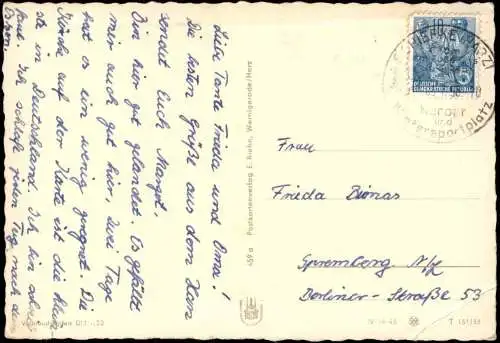 Liebe Tante Frieda und Oma!
Die besten Grüße aus dem Harz
sendet Euch Margot.
Bin hier gut gelandet. Es gefällt
mir auch gut hier, zwei Tage
hat es ein wenig geregnet. Die
Kirche auf der Karte ist die klein-
ste in Deutschland. Ich bin schon
Ich schlafe jeden Tag nach dem
459 a Postkartenverlag E. Riehn, Wernigerode/Harz
DEUTSCHE
DEMOKRATISCHE REPUBLIK
Kurort
und
Wintersportplatz
Frau
Frieda Bionas
Spremberg N/L
Berliner-Straße 53
IV-14-45